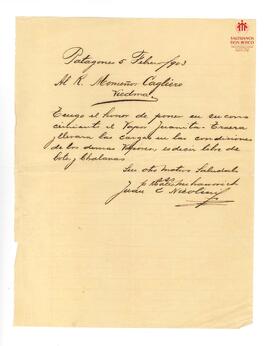 SALESIANOS
DON BOSCO
Patagones 5 Febrero/903
Al R. Monseñor Cagliero
Viedma
Tengo el honor de poner en su cono
cimiento el Vapor Juanita
llevara las cargas en las condiciones
de los demas Vapores, es decir libre de
bote y Chalanas
Sin otro motivo Saludale
Juan C